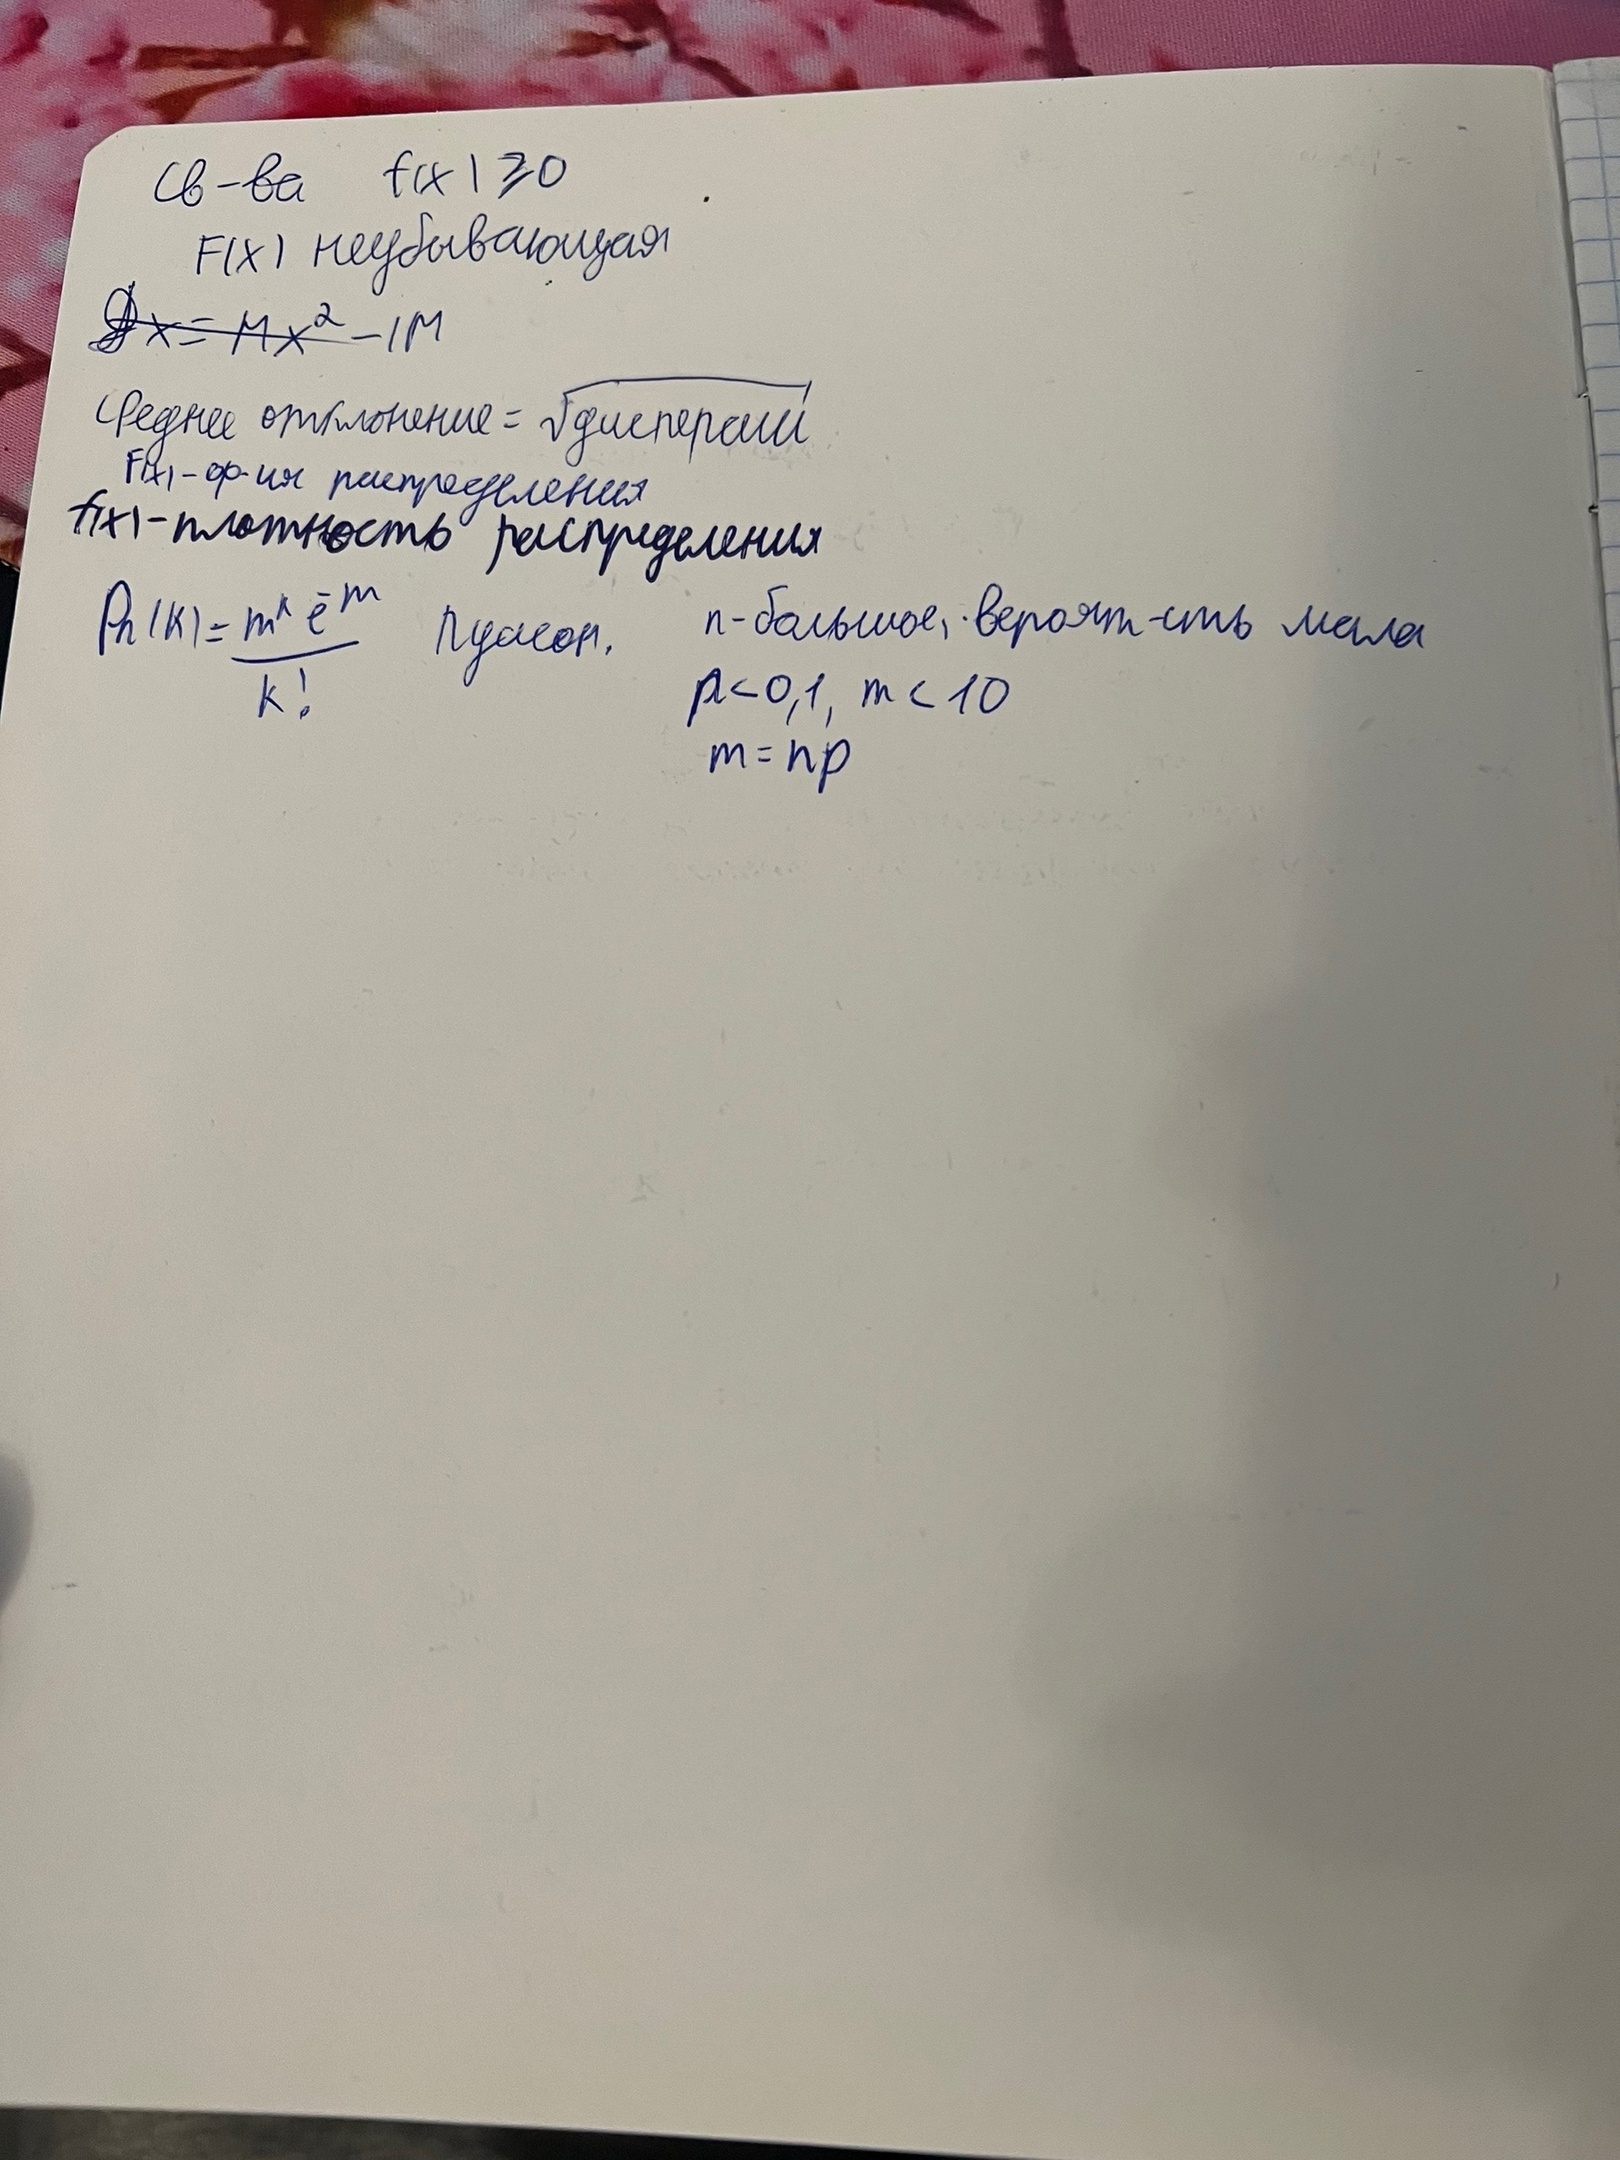 Св-ва f(x) ≥ 0
F(x) неубывающая
Дx = Mx² - (M
Среднее отклонение = √дисперсии
F(x) - ф-ия распределения
f(x) - плотность распределения
Pn(k) = m^k e^-m / k! Пуасон. n - большое, вероят-сть мала
p < 0,1, m < 10
m = np